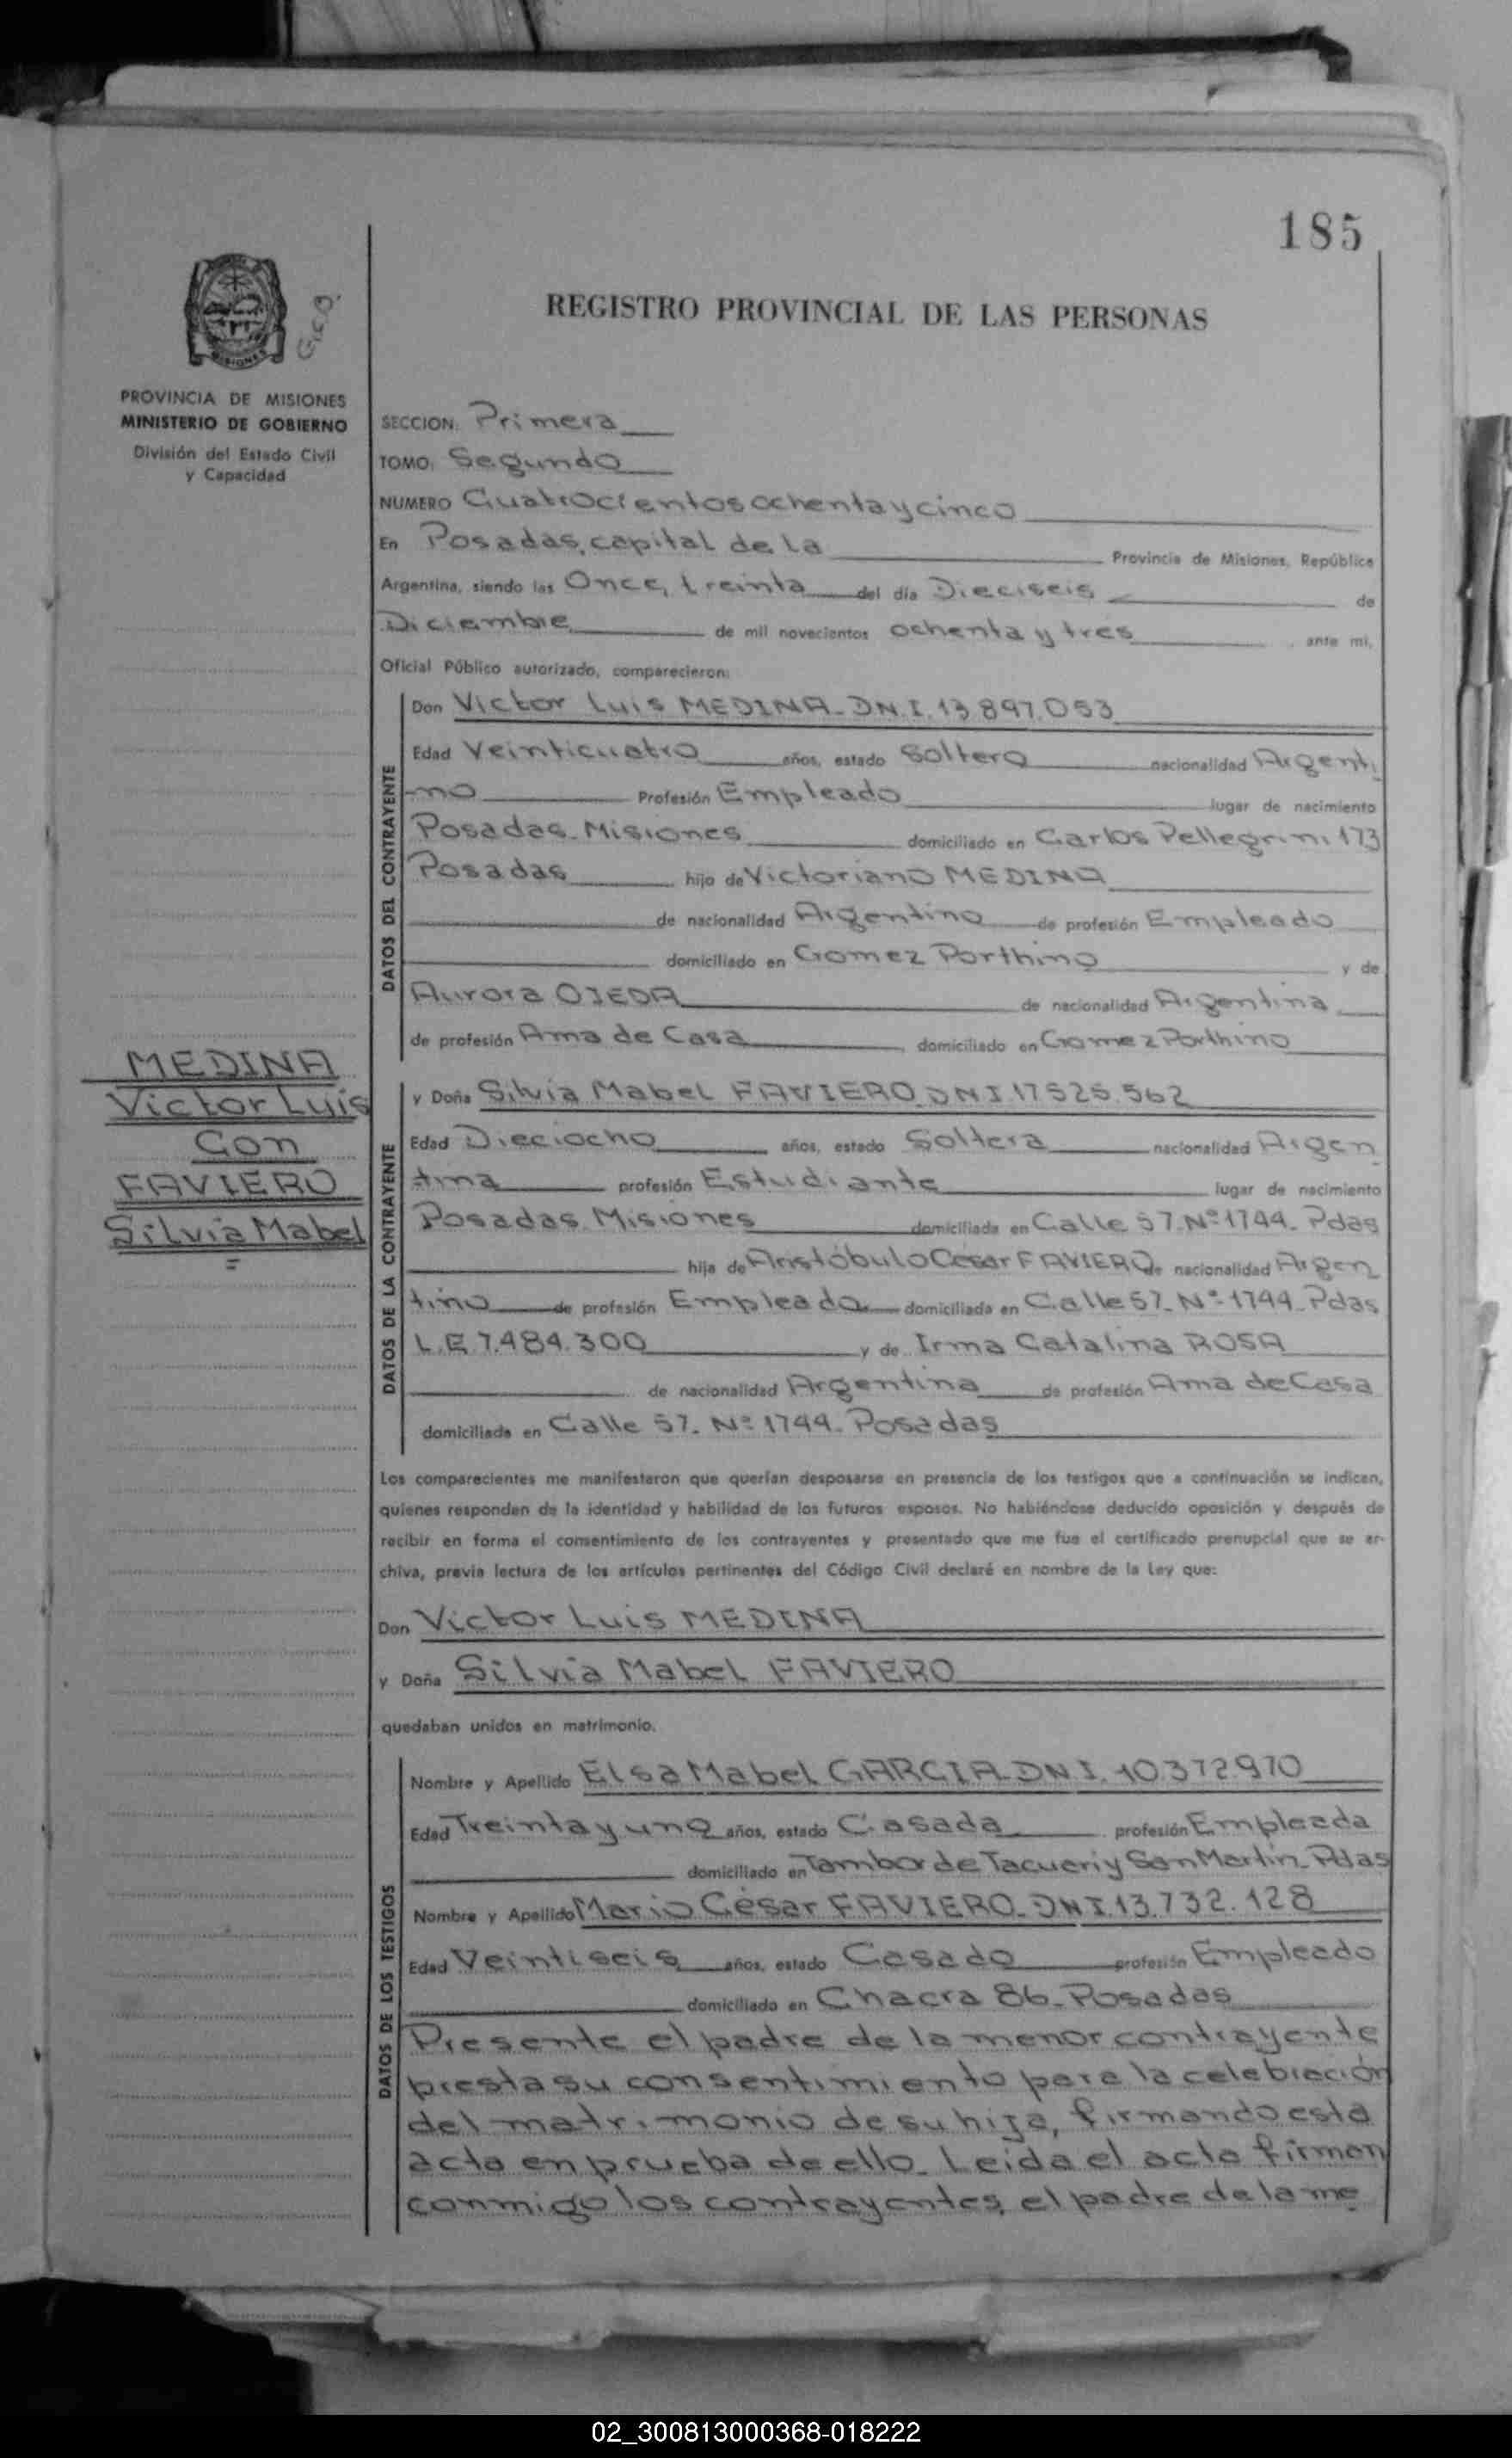 185
REGISTRO PROVINCIAL DE LAS PERSONAS
MISIONES
PROVINCIA DE MISIONES
MINISTERIO DE GOBIERNO
División del Estado Civil
y Capacidad
SECCION: Primera
TOMO: Segundo
NUMERO Cuatrocientos ochenta y cinco
En Posadas, capital de la Provincia de Misiones, República
Argentina, siendo las Once, treinta del día Dieciseis de
Diciembre de mil novecientos ochenta y tres, ante mi,
Oficial Público autorizado, comparecieron:
DATOS DEL CONTRAYENTE
Don Victor Luis MEDINA- DN.I. 13 897.053
Edad Veinticuatro años, estado Soltero nacionalidad Argenti
-no Profesión Empleado lugar de nacimiento
Posadas- Misiones domiciliado en Carlos Pellegrini 173
Posadas hijo de Victoriano MEDINA
de nacionalidad Argentino de profesión Empleado
domiciliado en Gomez Porthino y de
Aurora OJEDA de nacionalidad Argentina
de profesión Ama de Casa, domiciliado en Gomez Porthino
MEDINA
Victor Luis
Con
FAVIERO
Silvia Mabel
=
DATOS DE LA CONTRAYENTE
y Doña Silvia Mabel FAVIERO. DN I. 17 525.562
Edad Dieciocho años, estado Soltera nacionalidad Argen
tina profesión Estudiante lugar de nacimiento
Posadas Misiones domiciliada en Calle 57. Nº 1744. Pdas
hija de Aristóbulo Cesar FAVIERO de nacionalidad Argen
tino de profesión Empleado domiciliada en Calle 57. Nº- 1744- Pdas
L.E. 7.484.300 y de Irma Catalina ROSA
de nacionalidad Argentina de profesión Ama de Casa
domiciliada en Calle 57. Nº 1744- Posadas
Los comparecientes me manifestaron que querían desposarse en presencia de los testigos que a continuación se indican,
quienes responden de la identidad y habilidad de los futuros esposos. No habiéndose deducido oposición y después de
recibir en forma el consentimiento de los contrayentes y presentado que me fue el certificado prenupcial que se ar-
chiva, previa lectura de los artículos pertinentes del Código Civil declaré en nombre de la Ley que:
Don Victor Luis MEDINA
y Doña Silvia Mabel FAVIERO
quedaban unidos en matrimonio.
DATOS DE LOS TESTIGOS
Nombre y Apellido Elsa Mabel GARCIA- DN I. 10.372.970
Edad Treinta y uno años, estado Casada profesión Empleada
domiciliado en Tambor de Tacuari y San Martin- Pdas
Nombre y Apellido Mario César FAVIERO- DN I. 13.732.128
Edad Veintiseis años, estado Casado profesión Empleado
domiciliado en Chacra 86- Posadas
Presente el padre de la menor contrayente
presta su consentimiento para la celebración
del matrimonio de su hija, firmando esta
acta en prueba de ello- Leida el acta firman
conmigo los contrayentes, el padre de la me
02_300813000368-018222